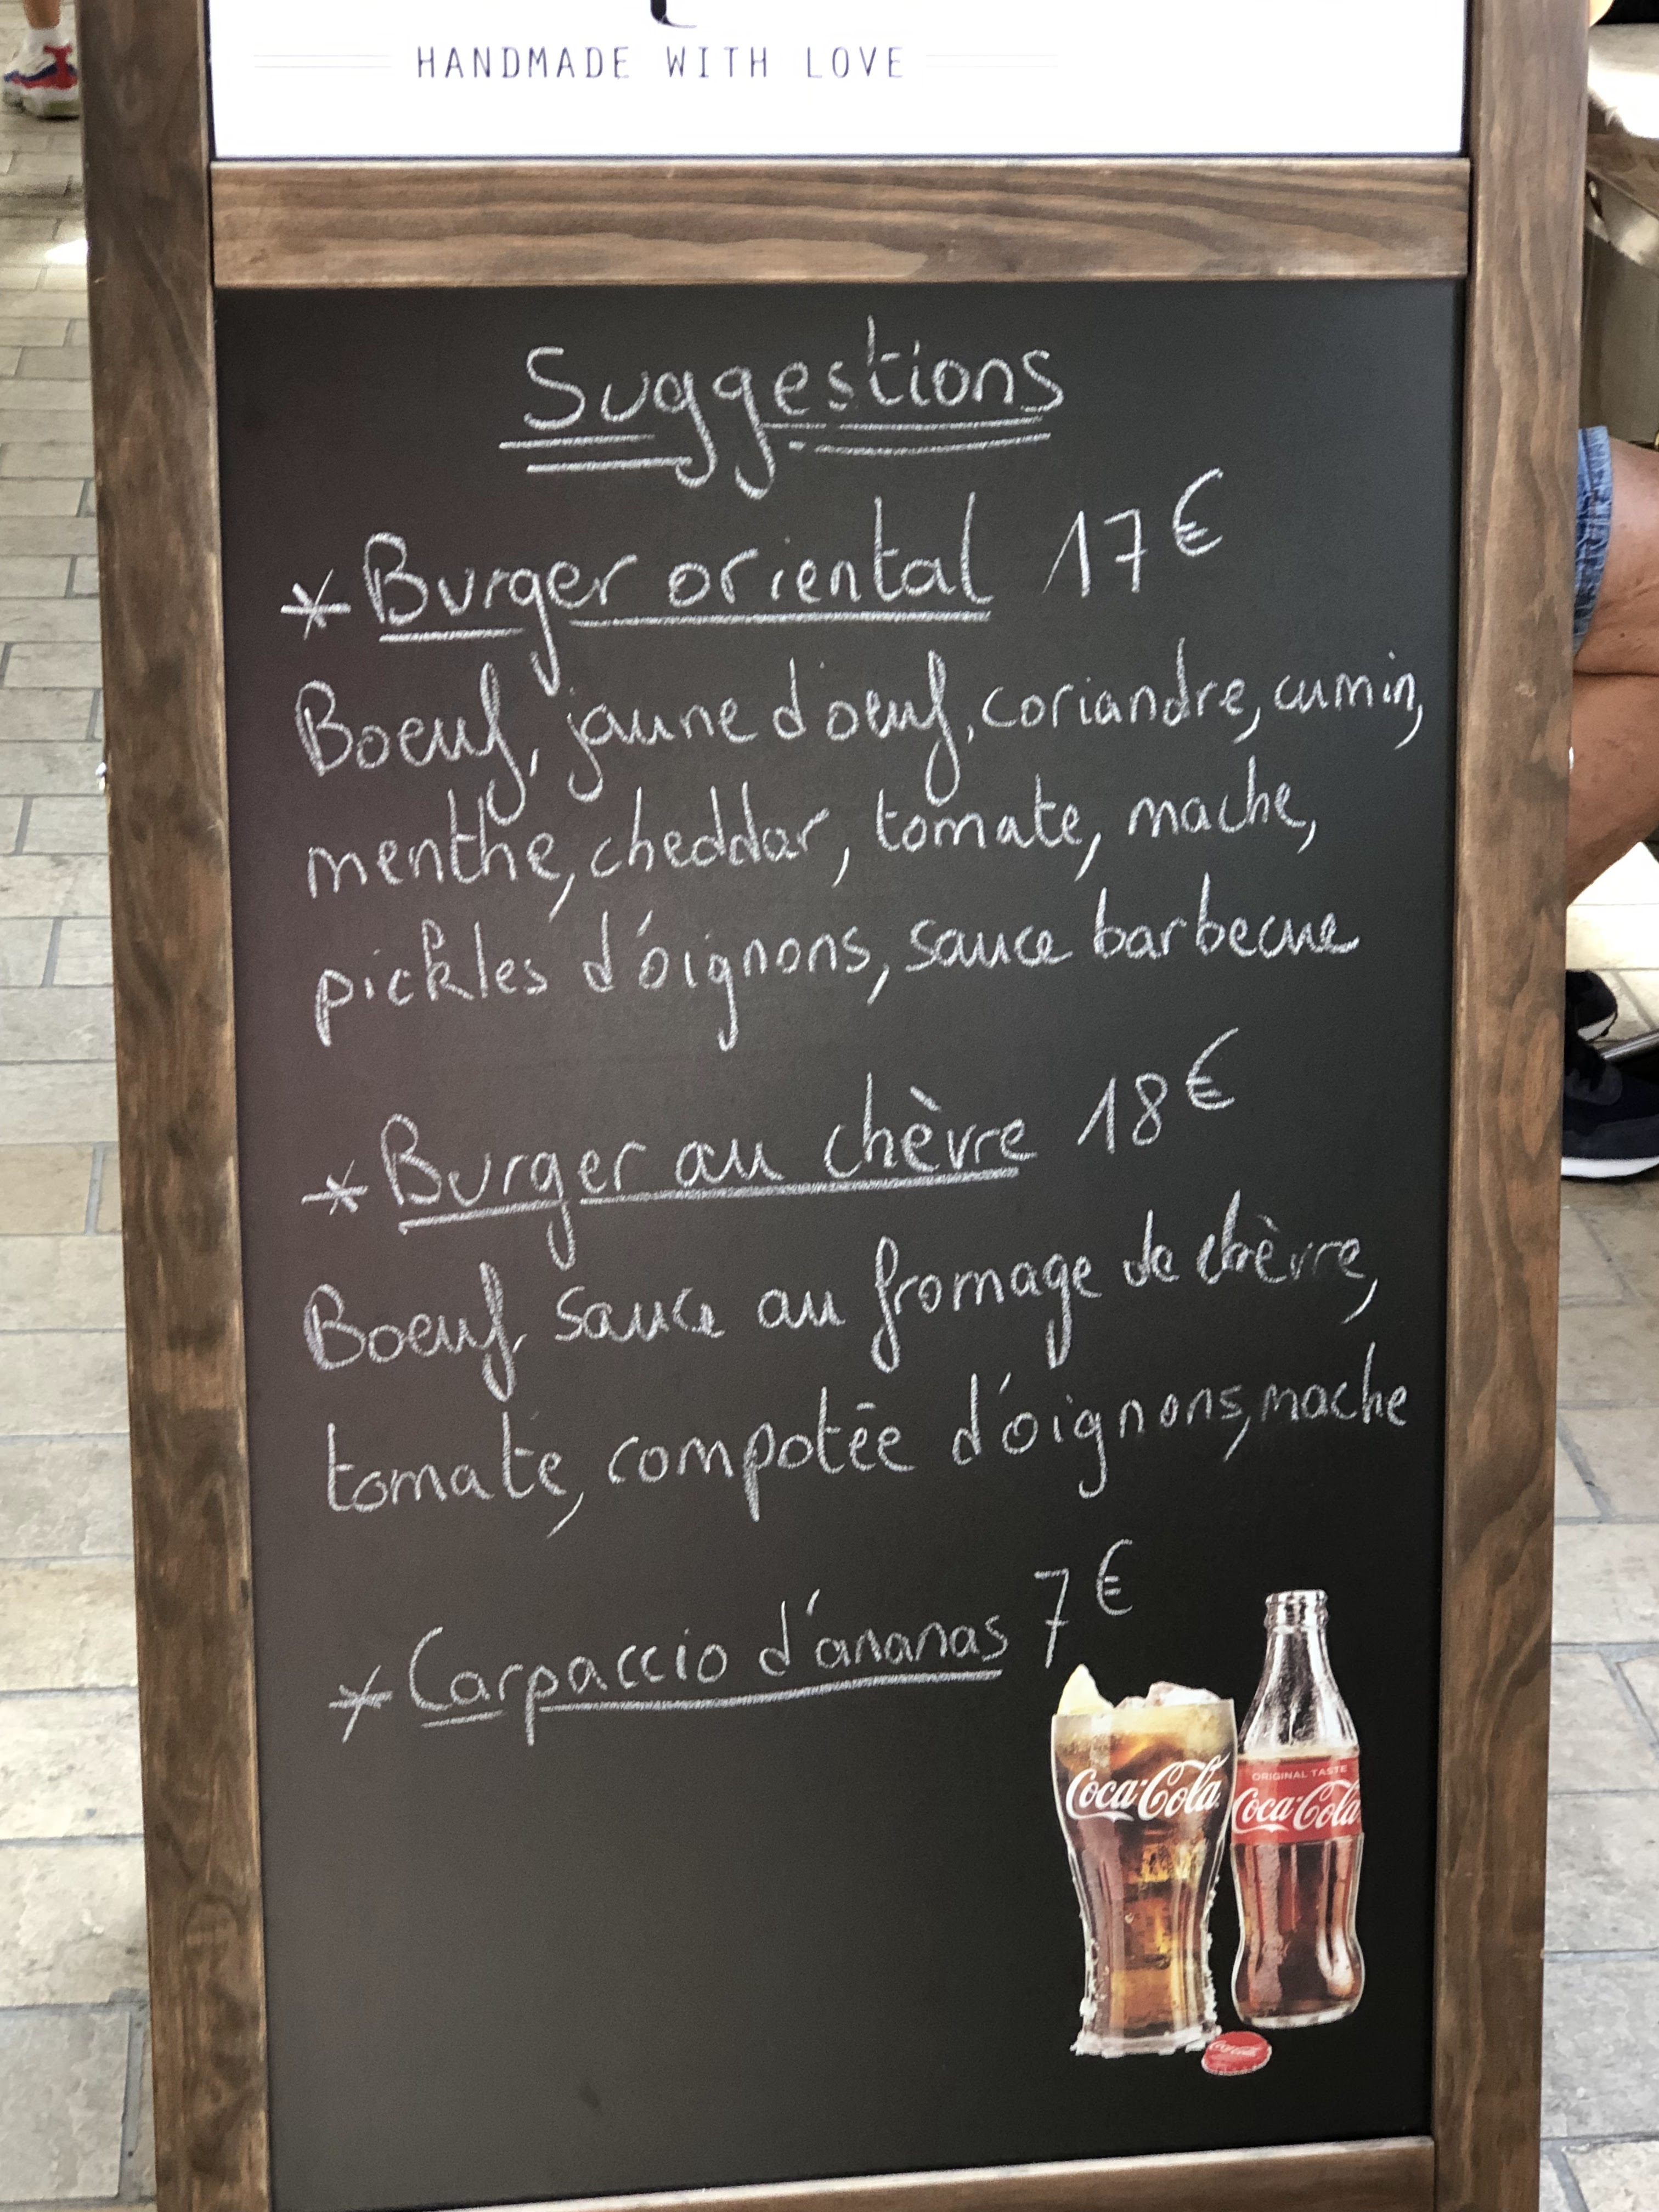 HANDMADE WITH LOVE
Suggestions
* Burger oriental 17€
Boeuf, jaune d'oeuf, coriandre, cumin,
menthe, cheddar, tomate, mache,
pickles d'oignons, sauce barbecue
* Burger au chèvre 18€
Boeuf, sauce au fromage de chèvre,
tomate, compotée d'oignons, mache
* Carpaccio d'ananas 7€
Coca-Cola
ORIGINAL TASTE
Coca-Cola